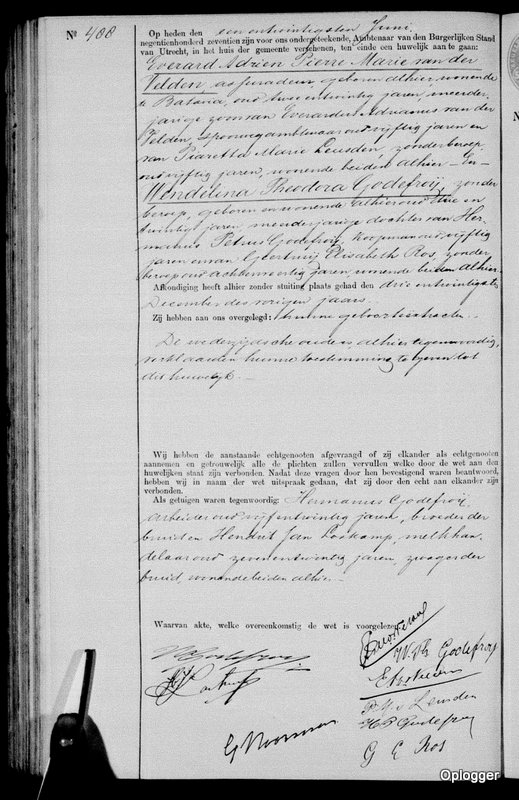 No 408
Op heden den een en twintigsten Juni
negentienhonderd zeventien zijn voor ons ondergeteekende, Ambtenaar van den Burgerlijken Stand
van Utrecht, in het huis der gemeente verschenen, ten einde een huwelijk aan te gaan:
Everard Adrien Pierre Marie van der
Velden, assuradeur, geboren alhier, wonende
te Batavia, oud twee en twintig jaren, meerder
jarige zoon van Everardus Adrianus van der
Velden, spoorwegambtenaar oud vijftig jaren en
van Piaretta Marie Leusden, zonder beroep,
oud vijftig jaren, wonende beiden alhier – En –
Wendelina Theodora Godefroij, zonder
beroep, geboren en wonende alhier oud drie en
twintig jaren, meerderjarige dochter van Her
manus Petrus Godefroij, koopman oud vijftig
jaren en van Geertruij Elisabeth Ros, zonder
beroep oud achtenveertig jaren, wonende beiden alhier.
Afkondiging heeft alhier zonder stuiting plaats gehad den drie en twintigsten
December des vorigen jaars.
Zij hebben aan ons overgelegd: hunne geboorteextracten.
De wederzijdsche ouders alhier tegenwoordig,
verklaarden hunne toestemming te geven tot
dit huwelijk.
Wij hebben de aanstaande echtgenooten afgevraagd of zij elkander als echtgenooten
aannemen en getrouwelijk alle de plichten zullen vervullen welke door de wet aan den
huwelijken staat zijn verbonden. Nadat deze vragen door hen bevestigend waren beantwoord,
hebben wij in naam der wet uitspraak gedaan, dat zij door den echt aan elkander zijn
verbonden.
Als getuigen waren tegenwoordig: Hermanus Godefroij
arbeider oud vijfentwintig jaren, broeder der
bruid en Hendrik Jan Loskamp, melkhan
delaar oud zevenentwintig jaren, zwager der
bruid wonende beiden alhier.
Waarvan akte, welke overeenkomstig de wet is voorgelezen.
W Th Godefroij
P M v Leusden
H P Godefroij
G E Ros
Oplogger